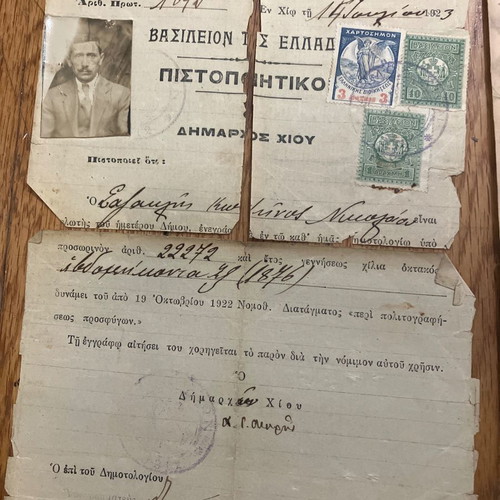 Ἀριθ. Πρωτ.
Ἐν Χίῳ τῇ 1923
ΒΑΣΙΛΕΙΟΝ ΤΗΣ ΕΛΛΑΔ
ΠΙΣΤΟΠΟΙΗΤΙΚΟ
Ο
ΔΗΜΑΡΧΟΣ ΧΙΟΥ
ΧΑΡΤΟΣΗΜΟΝ
3 3
40 40
1 1
Πιστοποιεῖ ὅτι:
Ὁ Νικολάου εἶναι
τοῦ ἡμετέρου Δήμου, ἐν τῷ καθ' ἡμᾶς ὑπὸ
προσωρινὸν ἀριθ. 22272 καὶ ἔτος γεννήσεως χίλια ὀκτακόσ
ἑβδομήκοντα ἕξ (1876)
δυνάμει τοῦ ἀπὸ 19 Ὀκτωβρίου 1922 Νομοθ. Διατάγματος «περὶ πολιτογραφή-
σεως προσφύγων.»
Τῇ ἐγγράφῳ αἰτήσει του χορηγεῖται τὸ παρὸν διὰ τὴν νόμιμον αὐτοῦ χρῆσιν.
Ὁ
Δήμαρχ Χίου
Ὁ ἐπὶ τοῦ Δημοτολογίου